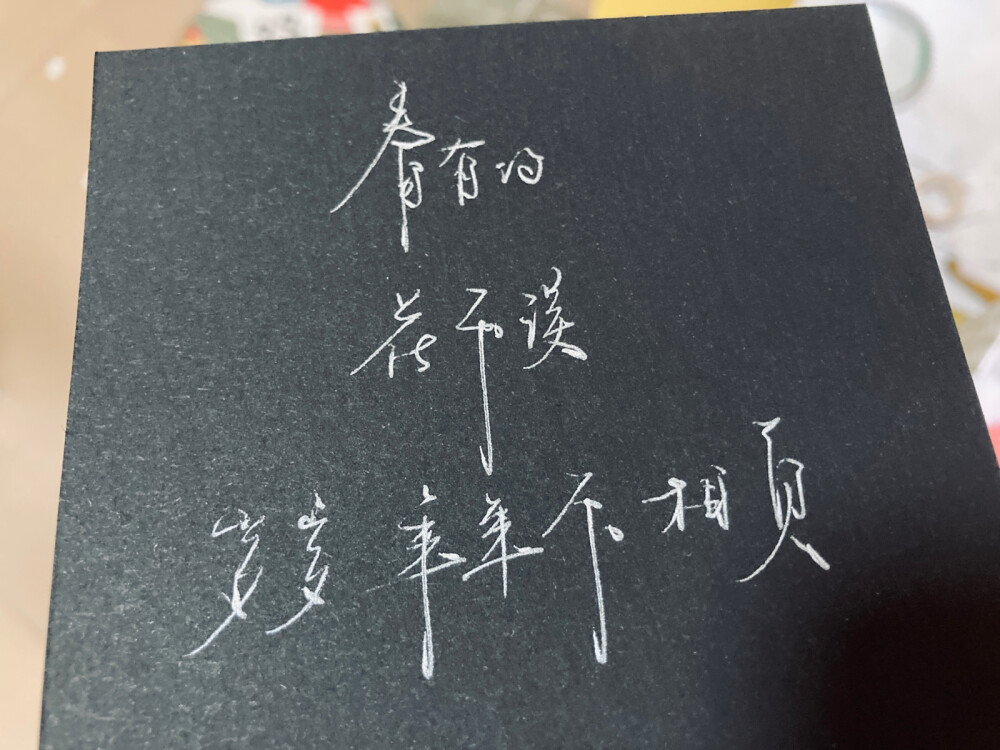 春有约
花不误
岁岁年年不相负